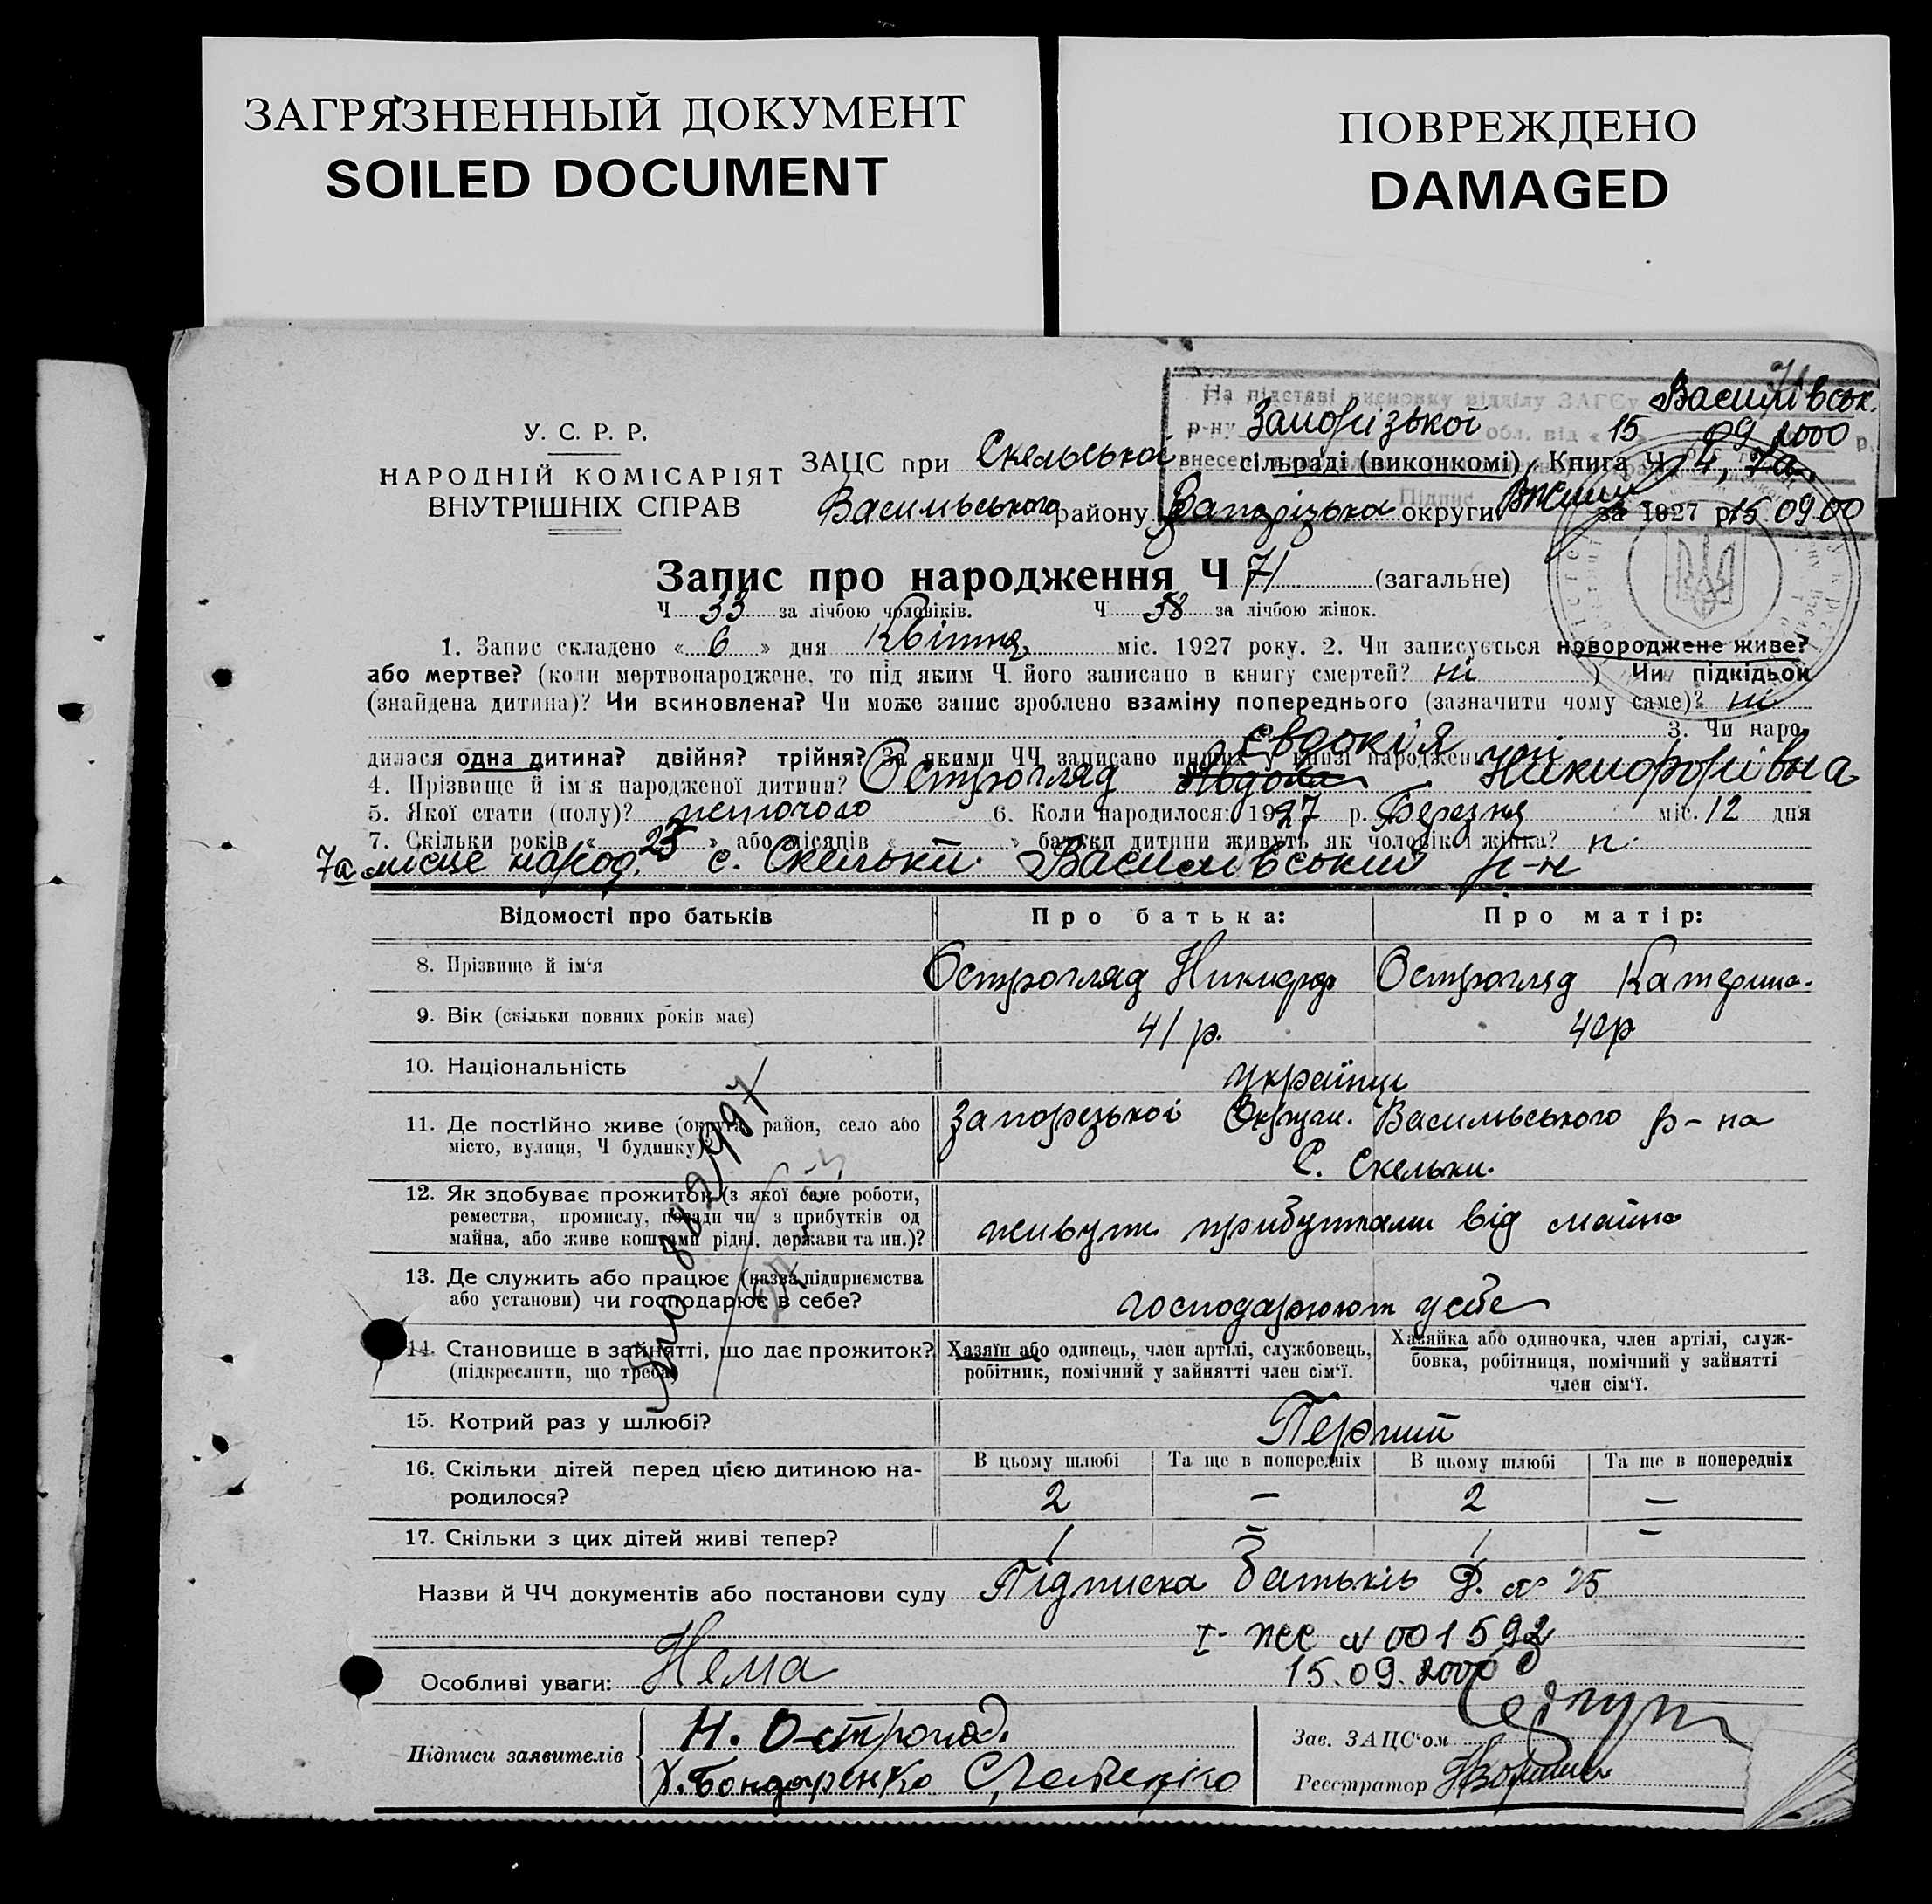 ЗАГРЯЗНЕННЫЙ ДОКУМЕНТ
SOILED DOCUMENT
ПОВРЕЖДЕНО
DAMAGED
На підставі висновку відділу ЗАГСу Василівськ.
р-ну Запорізької обл. від « 15 09 2000 р.
У. С. Р. Р.
НАРОДНІЙ КОМІСАРІЯТ
ВНУТРІШНІХ СПРАВ
ЗАЦС при Скельської сільраді (виконкомі) Книга Ч 4, 7а
Васильського району Запорізька округи за 1927 р. 15 09 00
Підпис
Запис про народження Ч 71 (загальне)
Ч 33 за лічбою чоловіків. Ч 38 за лічбою жінок.
1. Запис складено « 6 » дня Квітня міс. 1927 року. 2. Чи записується новороджене живе?
або мертве? (коли мертвонароджене, то під яким Ч. його записано в книгу смертей? ні ) Чи підкідьок
(знайдена дитина)? Чи всиновлена? Чи може запис зроблено взаміну попереднього (зазначити чому саме)? ні
3. Чи наро-
дилася одна дитина? двійня? трійня? За якими ЧЧ записано инших у книзі народжень?
Євдокія
4. Прізвище й ім'я народженої дитини? Острогляд Никифорівна
5. Якої стати (полу)? жіночого 6. Коли народилося: 1927 р. Березня міс. 12 дня
7. Скільки років « 23 » або місяців « » батьки дитини живуть як чоловік і жінка?
7а місце народ. с. Скельки Василівський р-н
Відомості про батьків Про батька: Про матір:
8. Прізвище й ім'я Острогляд Никифор Острогляд Катерина
9. Вік (скільки повних років має) 41 р. 40 р
10. Національність українці
11. Де постійно живе (округа, район, село або
місто, вулиця, Ч будинку)?
Запорізької Округи. Васильського р-на
С. Скельки.
12. Як здобуває прожиток (з якої саме роботи,
ремества, промислу, посади чи з прибутків од
майна, або живе коштами рідні, держави та ин.)?
живуть прибутками від майна
13. Де служить або працює (назва підприємства
або установи) чи господарює в себе?
господарюють у себе
14. Становище в зайнятті, що дає прожиток?
(підкреслити, що треба)
Хазяїн або одинець, член артілі, службовець,
робітник, помічний у зайнятті член сім'ї.
Хазяйка або одиночка, член артілі, служ-
бовка, робітниця, помічний у зайнятті
член сім'ї.
15. Котрий раз у шлюбі? Перший
16. Скільки дітей перед цією дитиною на-
родилося?
В цьому шлюбі Та ще в попередніх В цьому шлюбі Та ще в попередніх
2 — 2 —
17. Скільки з цих дітей живі тепер? 1 — 1 —
Назви й ЧЧ документів або постанови суду Підписка батьків
№ 001592
15.09.2000
Особливі уваги: Нема
Підписи заявителів
Н. Острогляд.
Х. Бондаренко
Зав. ЗАЦС'ом
Реєстратор